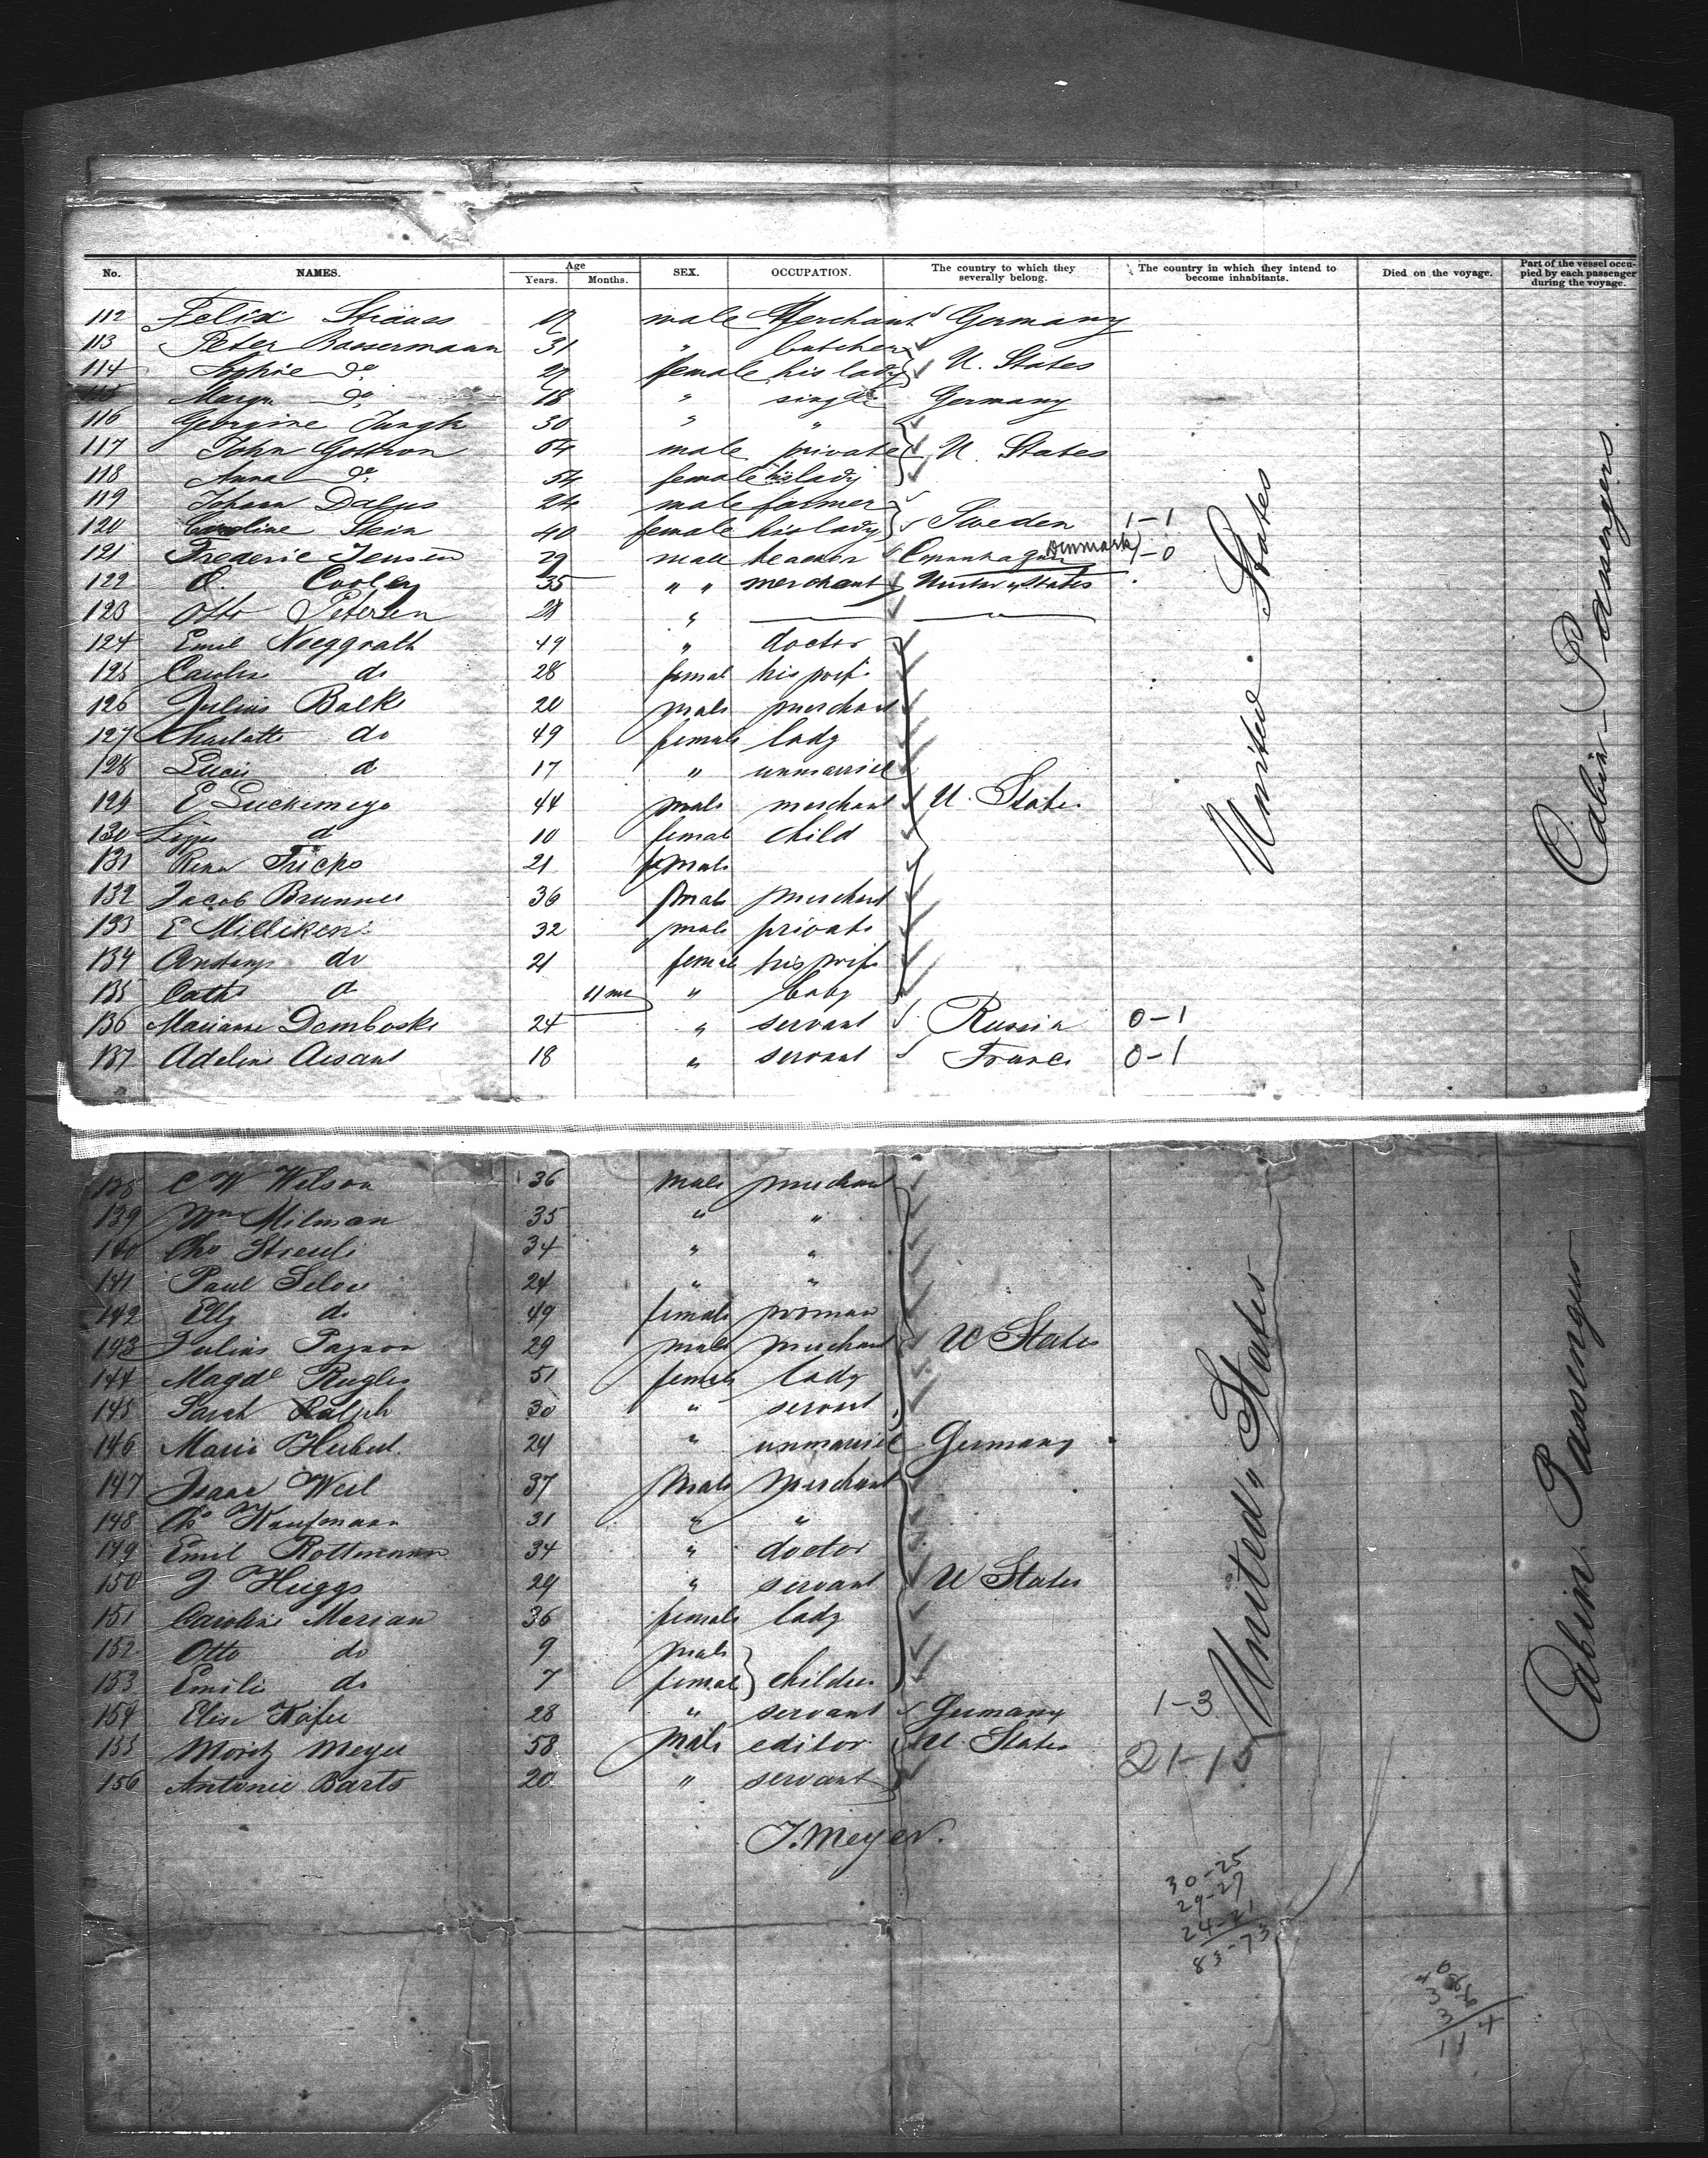 No. NAMES. Age Years. Months. SEX. OCCUPATION. The country to which they severally belong. The country in which they intend to become inhabitants. Died on the voyage. Part of the vessel occupied by each passenger during the voyage.
112 Felix Strauss male Merchant Germany
113 Peter Bassermann 31 " butcher
114 Sophie do female his lady U. States
Margr. do 18 " single Germany
116 Georgine Jungk 30 " "
117 John Gottron 64 male private U. States
118 Anna do 54 female his lady
119 Johann 24 male farmer
120 Caroline Stein 40 female his lady Sweden 1-1
121 Frederic Jensen 29 male teacher Copenhagen Denmark 1-0
122 O Cooley 35 " " merchant United States
123 Otto Petersen 28 "
124 Emil Noeggrath 49 " doctor
125 do 28 female his wife
126 Julius Balke 20 male merchant
127 Charlotte do 49 female lady
128 Lucie do 17 " unmarried
129 E Luckemeyer 44 male merchant U. States
130 do 10 female child
131 Fricke 21 female
132 Jacob Brunner 36 male merchant
133 E Milliken 32 male private
134 do 21 female his wife
135 Cath do 11 mo " baby
136 Marianne Demboske 24 " servant Russia 0-1
137 Adeline 18 " servant France 0-1
138 C W Wilson 36 male merchant
139 Wm Milman 35 " "
140 Chs Streuli 34 " "
141 Paul 24 " "
142 Elly do 49 female woman
143 Julius 29 male merchant U States
144 Magde Rugler 51 female lady
145 Sarah Ralph 30 " servant
146 Marie Hubert 24 " unmarried Germany
147 Isaac Weil 37 male merchant
148 Chs Kaufmann 31 " "
149 Emil Rottmann 34 " doctor
150 J Huggs 29 " servant U States
151 Caroline Merian 36 female lady
152 Otto do 9 male
153 Emilie do 7 female children
154 Elise Käfer 28 " servant Germany 1-3
155 Moritz Meyer 58 male editor U. States 21-15
156 Antonie Barts 20 " servant
J. Meyer.
United States
Cabin Passengers
United States
Cabin Passengers
30-25
29-27
24-21
83-73